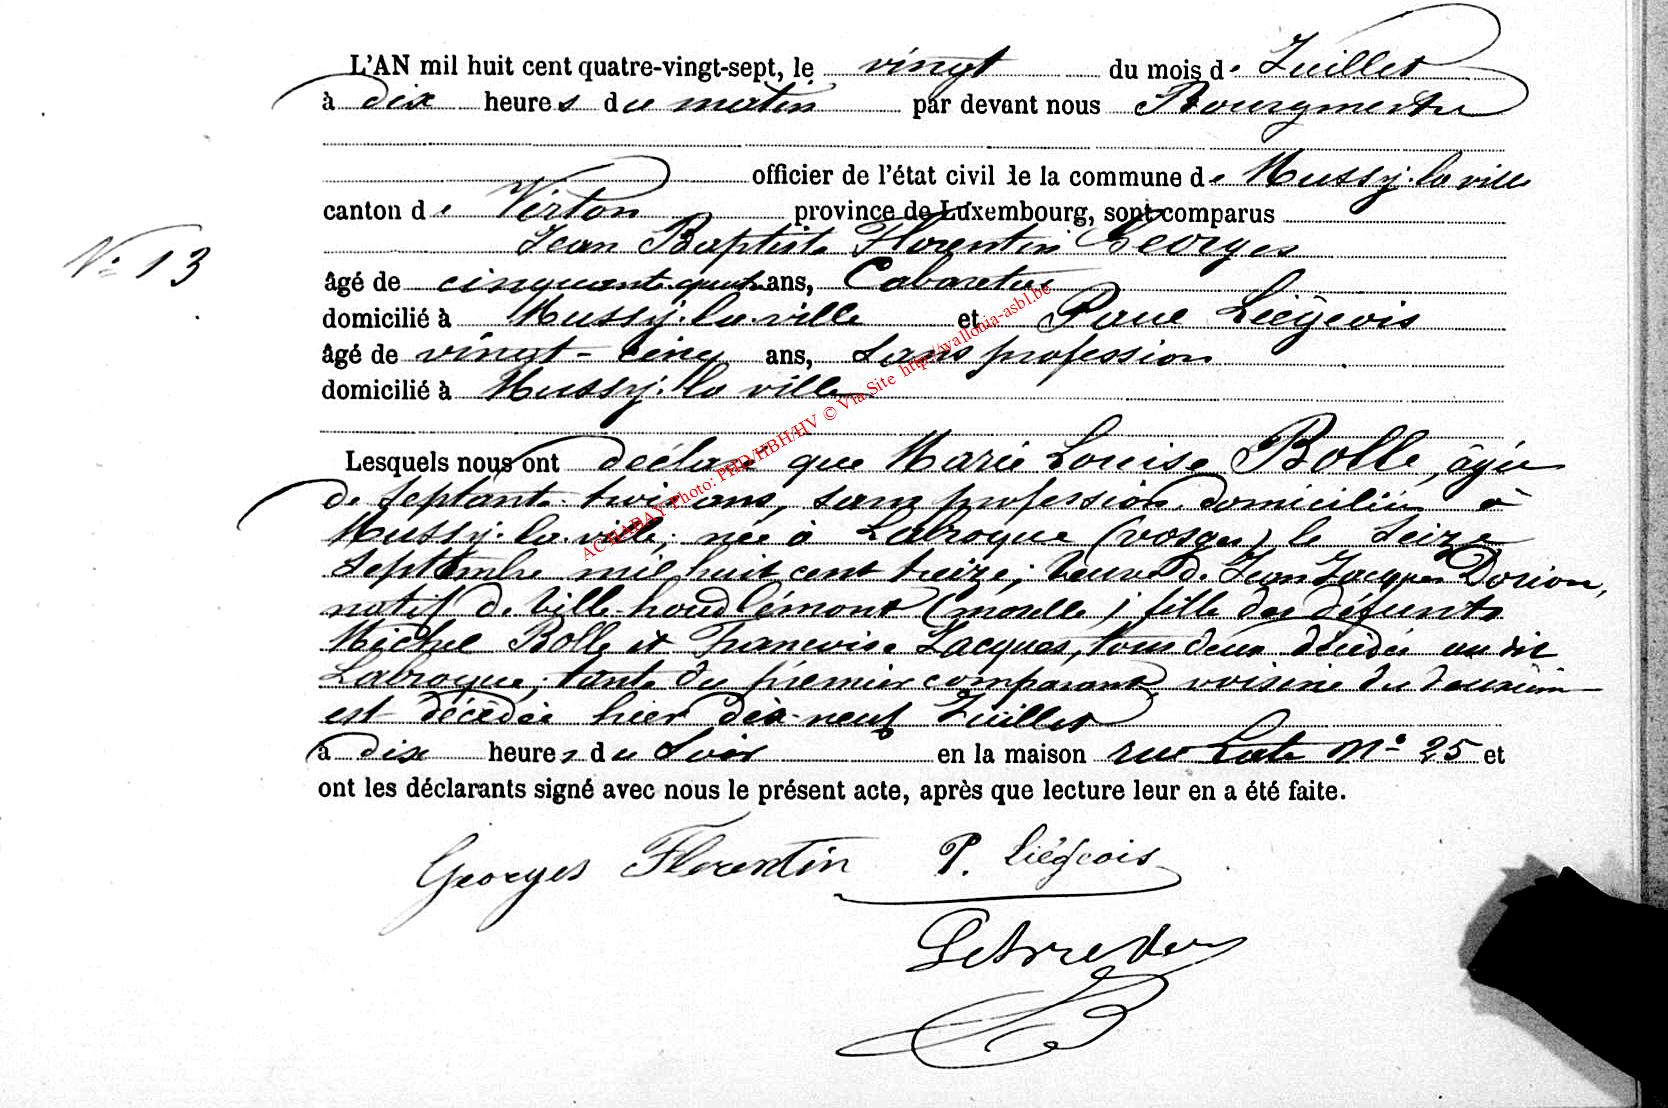 L'AN mil huit cent quatre-vingt-sept, le vingt du mois de Juillet
à dix heures du matin par devant nous Bourgmestre
officier de l'état civil de la commune de Mussy-la-ville
canton de Virton province de Luxembourg, sont comparus
Jean Baptiste Florentin Georges
N° 13
âgé de cinquante quatre ans, Cabaretier
domicilié à Mussy-la-ville et Paul Liégeois
âgé de vingt-cinq ans, sans profession
domicilié à Mussy-la-ville
Lesquels nous ont déclaré que Marie Louise Bolle, âgée
de septante-trois ans, sans profession domiciliée à
Mussy-la-ville, née à Labroque (vosges) le seize
septembre mil huit cent treize; veuve de Jean Jacques Dorion,
natif de Ville-houdlémont (moselle); fille des défunts
Michel Bolle et Francoise Jacques, tous deux décédés au dit
Labroque; tante du premier comparant, voisine du deuxième
est décédée hier dix-neuf Juillet
à dix heures du soir en la maison rue n° 25 et
ont les déclarants signé avec nous le présent acte, après que lecture leur en a été faite.
Georges Florentin P. Liégeois
AC HABAY Photo: PHD/HBH/HV © Via Site http://wallonia-asbl.be